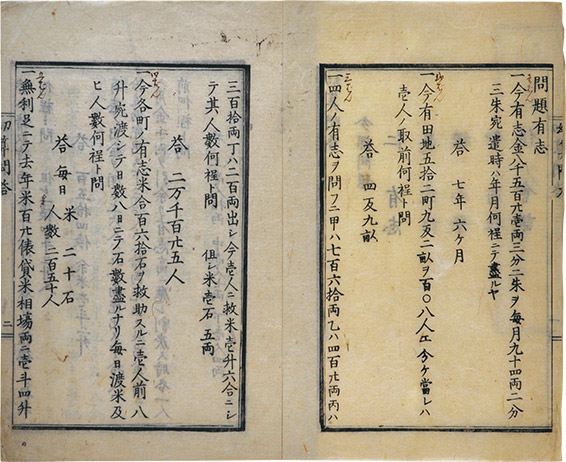 問題有志
一今有志金八千五百廿壱両三分二朱ヲ毎月九十四両二分
三朱宛遣時ハ年月何程ニテ盡ルヤ
答 七年六ヶ月
一今有田地五拾二町九反二畝ヲ百〇八人エ分ケ當レハ
壱人ノ取前何程ト問
答 四反九畝
一四人ノ有志ヲ問フニ甲ハ七百六拾両乙ハ四百廿両丙ハ
三百拾両丁ハ二百両出シ今壱人ニ救米壱升六合ニシ
テ其人數何程ト問 但シ米壱石五両
答 二万千百廿五人
一今各町ノ有志米合百六拾石ヲ救助スルニ壱人前八
升宛渡シテ日數八日ニテ石數盡ルナリ毎日渡米及
ヒ人數何程ト問
答 毎日 米二十石
人數二百五十人
一無利足ニテ去年米百廿俵貸米相場両ニ壱斗四升
二